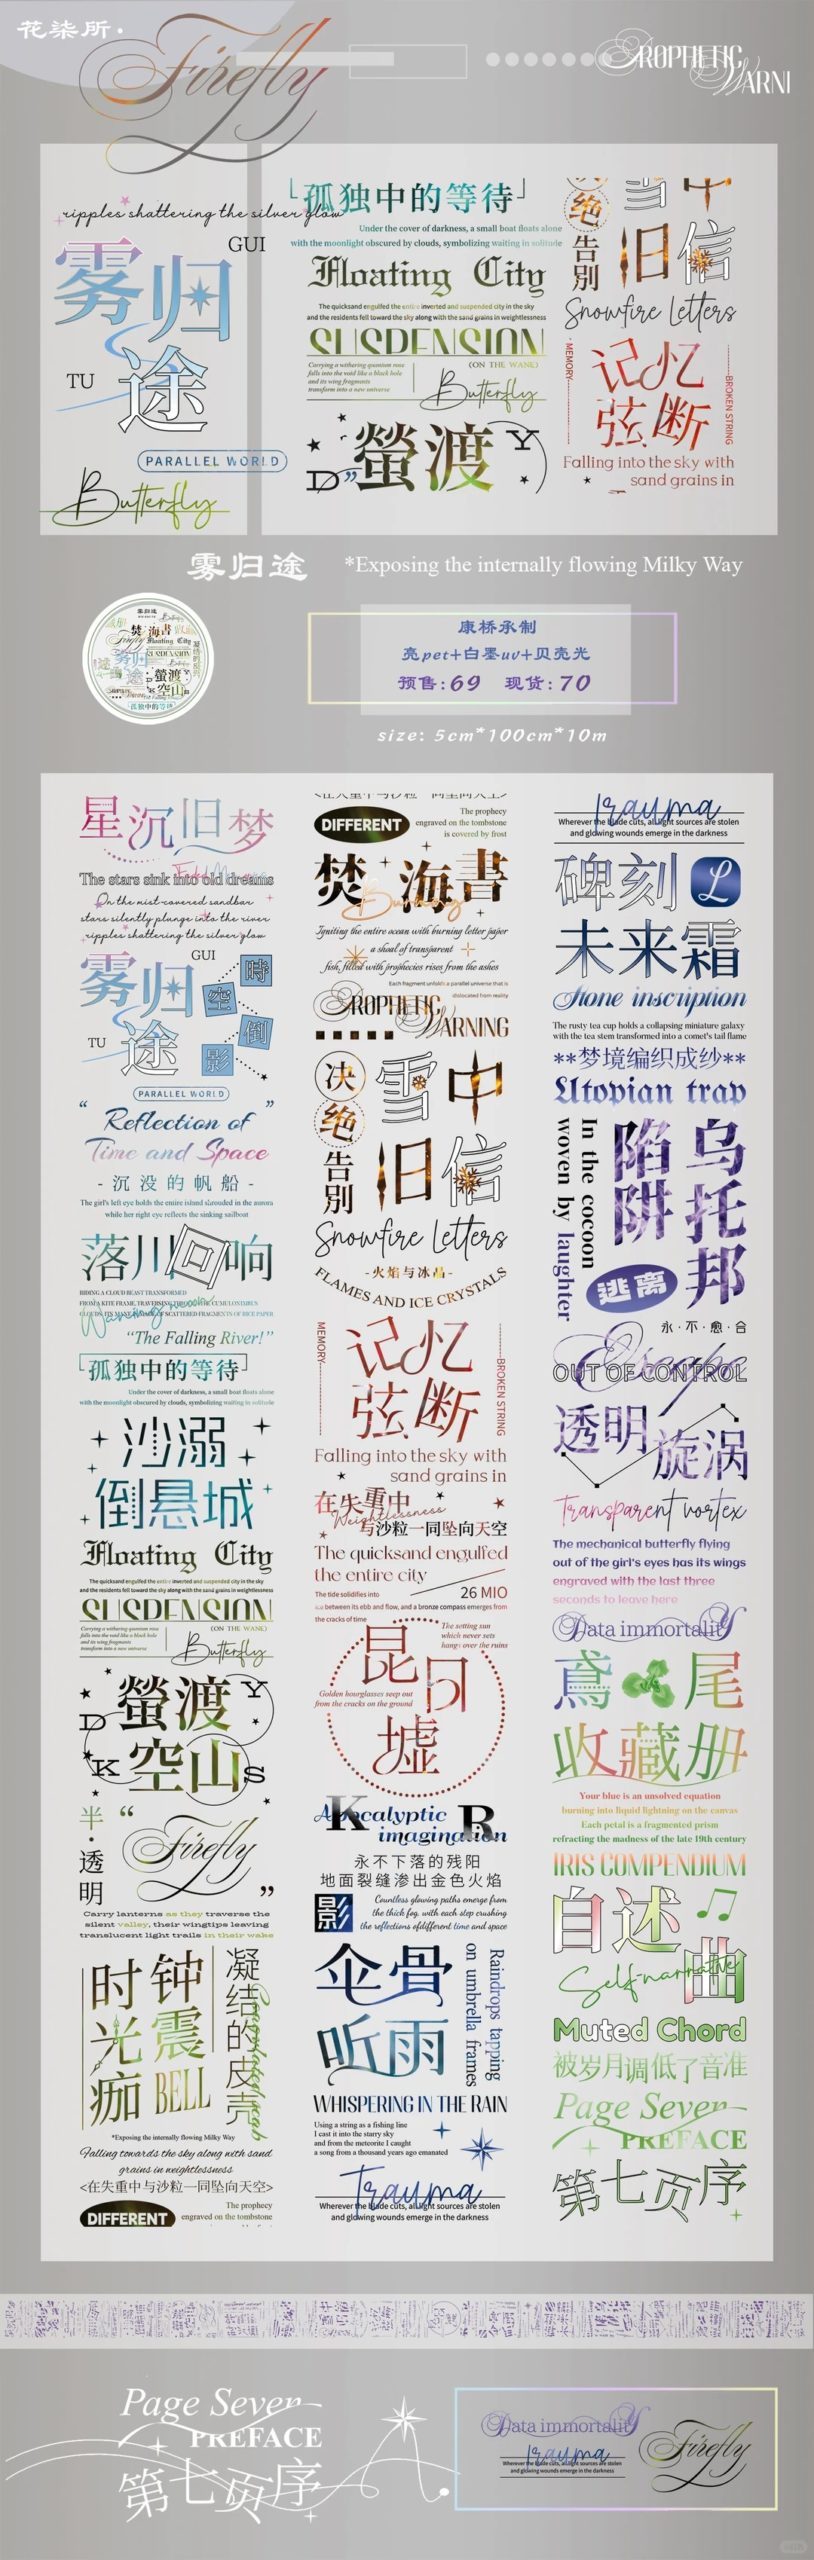 花柒所·
Firefly
PROPHETIC
WARNI
ripples shattering the silver glow
GUI
雾归
TU
途
PARALLEL WORLD
Butterfly
「孤独中的等待」
Under the cover of darkness, a small boat floats alone
with the moonlight obscured by clouds, symbolizing waiting in solitude
Floating City
The quicksand engulfed the entire inverted and suspended city in the sky
and the residents fell toward the sky along with the sand grains in weightlessness
SUSPENSION
Carrying a withering quantum rose
falls into the void like a black hole
and its wing fragments
transform into a new universe
(ON THE WANE)
Butterfly
D”螢渡Y
绝
告
别
旧信
Snowfire Letters
MEMORY
记忆
弦断
BROKEN STRING
Falling into the sky with
sand grains in
雾归途
*Exposing the internally flowing Milky Way
康桥承制
亮pet+白墨uv+贝壳光
预售:69 现货:70
size: 5cm*100cm*10m
星沉旧梦
The stars sink into old dreams
On the mist-covered sandbar
stars silently plunge into the river
ripples shattering the silver glow
GUI
雾归
時
空
倒
影
TU
途
PARALLEL WORLD
“ Reflection of ”
Time and Space
- 沉没的帆船 -
The girl's left eye holds the entire island shrouded in the aurora
while her right eye reflects the sinking sailboat
落川回响
RIDING A CLOUD BEAST TRANSFORMED
“The Falling River!”
「孤独中的等待」
Under the cover of darkness, a small boat floats alone
with the moonlight obscured by clouds, symbolizing waiting in solitude
沙溺
倒悬城
Floating City
The quicksand engulfed the entire inverted and suspended city in the sky
and the residents fell toward the sky along with the sand grains in weightlessness
SUSPENSION
Carrying a withering quantum rose
falls into the void like a black hole
and its wing fragments
transform into a new universe
(ON THE WANE)
Butterfly
D螢渡Y
K空山S
半·透明
“Firefly”
Carry lanterns as they traverse the
silent valley, their wingtips leaving
translucent light trails in their wake
时光痂
钟震
BELL
凝结的皮壳
*Exposing the internally flowing Milky Way
Falling towards the sky along with sand
grains in weightlessness
<在失重中与沙粒一同坠向天空>
DIFFERENT
The prophecy
engraved on the tombstone
DIFFERENT
The prophecy
engraved on the tombstone
is covered by frost
焚海書
Burning
Igniting the entire ocean with burning letter paper
a shoal of transparent
fish, filled with prophecies rises from the ashes
Each fragment unfolds a parallel universe that is
dislocated from reality
PROPHETIC
WARNING
决绝告别
雪中
旧信
Snowfire Letters
-火焰与冰晶-
FLAMES AND ICE CRYSTALS
MEMORY
记忆
弦断
BROKEN STRING
Falling into the sky with
sand grains in
在失重中
Weightlessness
与沙粒一同坠向天空
The quicksand engulfed
the entire city
26 MIO
The tide solidifies into
ice between its ebb and flow, and a bronze compass emerges from
the cracks of time
The setting sun
which never sets
hangs over the ruins
昆
日
墟
Golden hourglasses seep out
from the cracks on the ground
K
R
Apocalyptic
imagination
永不下落的残阳
地面裂缝渗出金色火焰
影
Countless glowing paths emerge from
the thick fog, with each step crushing
the reflections ofdifferent time and space
伞骨
听雨
Raindrops tapping
on umbrella frames
WHISPERING IN THE RAIN
Using a string as a fishing line
I cast it into the starry sky
and from the meteorite I caught
a song from a thousand years ago emanated
Trauma
Wherever the blade cuts, all light sources are stolen
and glowing wounds emerge in the darkness
Trauma
Wherever the blade cuts, all light sources are stolen
and glowing wounds emerge in the darkness
碑刻
L
未来霜
Stone inscription
The rusty tea cup holds a collapsing miniature galaxy
with the tea stem transformed into a comet's tail flame
**梦境编织成纱**
Utopian trap
In the cocoon
woven by laughter
陷阱
乌托邦
逃离
永·不·愈·合
Escape
OUT OF CONTROL
透明
旋涡
Transparent vortex
The mechanical butterfly flying
out of the girl's eyes has its wings
engraved with the last three
seconds to leave here
Data immortaliY
鸢尾
收藏册
Your blue is an unsolved equation
burning into liquid lightning on the canvas
Each petal is a fragmented prism
refracting the madness of the late 19th century
IRIS COMPENDIUM
自述
曲
Self-narrative
Muted Chord
被岁月调低了音准
Page Seven
PREFACE
第七页序
Page Seven
PREFACE
第七页序
Data immortaliY
Trauma
Wherever the blade cuts, all light sources are stolen
and glowing wounds emerge in the darkness
Firefly